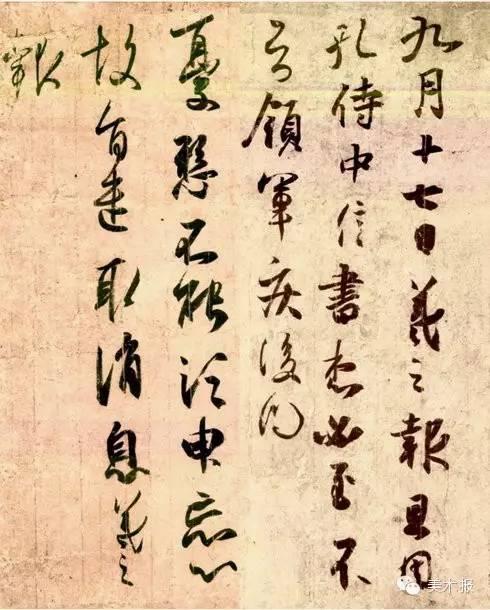 九月十七日羲之報且因
孔侍中信書想必至不
知領軍疾後問
憂懸不能須臾忘心
故旨遣取消息羲之
報
美术报